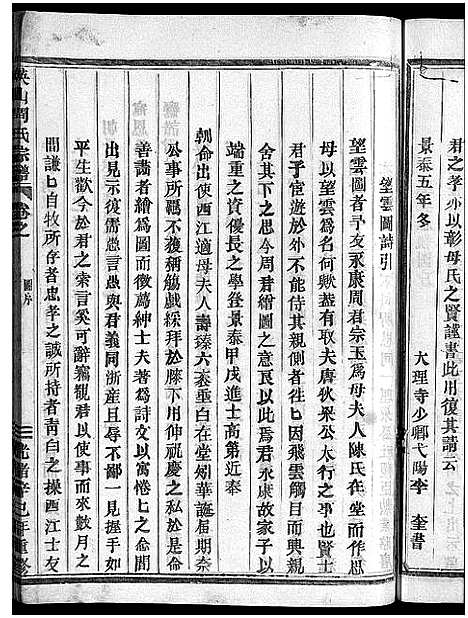 君之孝亦以彰母氏之賢謹書此用復其請云
景泰五年冬
大理寺少卿弋陽李 奎書
望雲圖詩引
望雲圖者予友永康周君宗玉爲母夫人陳氏在堂而作思
母以望雲爲名何歟蓋有取夫唐狄梁公太行之事也賢士
君子宦遊於外其親側侍養恆曰因飛雲觸目而興親
舍其下之思今周君繪圖之意良以此焉君永康故家子以
端重之資優長之學登景泰甲戌進士高第近奉
朝命出使西江適母夫人壽臻六袠垂白在堂剡華誕届期奈
公事所羈不獲稱觴戲綵拜於膝下用伸祝慶之私於是求
善畫者繪爲圖而徵薦紳士夫著爲詩文以寓惓匕之念間
出見示復需愆言愚與君義同浙産且辱不鄙一見握手如
平生歡今於君之索言奚可辭竊觀君以使事而來數月之
間謙匕自牧所存者忠孝之誠所持者靑白之操西江士友
英山周氏宗譜 卷之
圖序
光緒辛巳年重修